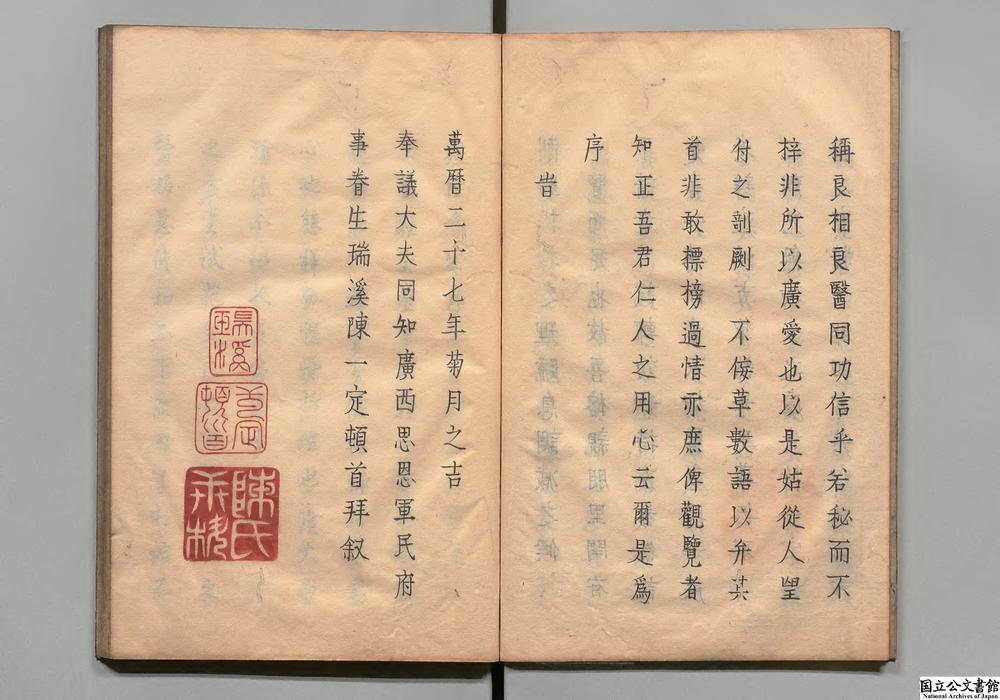 稱良相良醫同功信乎若秘而不
梓非所以廣愛也以是姑從人望
付之剞劂方不佞草數語以弁其
首非敢摽榜過情亦庶俾觀覽者
知正吾君仁人之用心云爾是為
序
旹
萬曆二十七年菊月之吉
奉議大夫同知廣西思恩軍民府
事眷生瑞溪陳一定頓首拜叙
陳氏
国立公文書館
National Archives of Japan